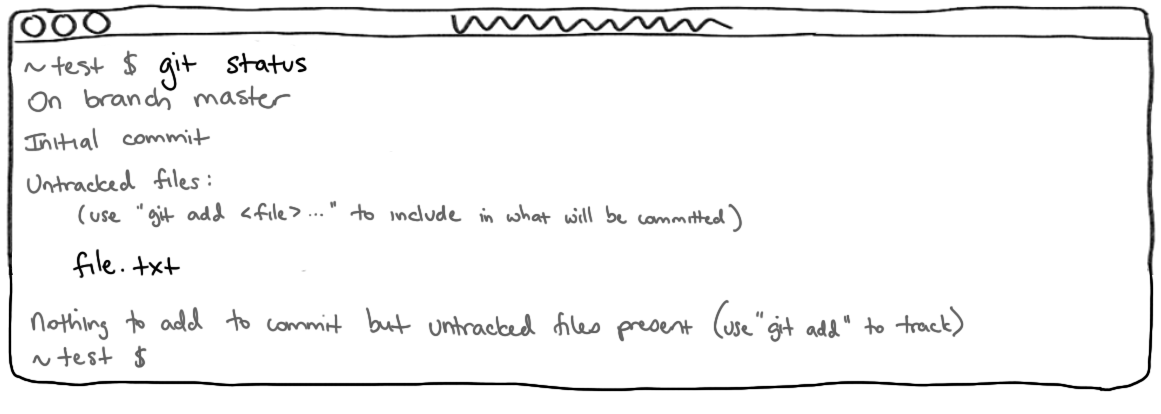 ~ test $ git status
On branch master
Initial commit
Untracked files:
(use "git add <file>..." to include in what will be committed)
file.txt
Nothing to add to commit but untracked files present (use "git add" to track)
~ test $